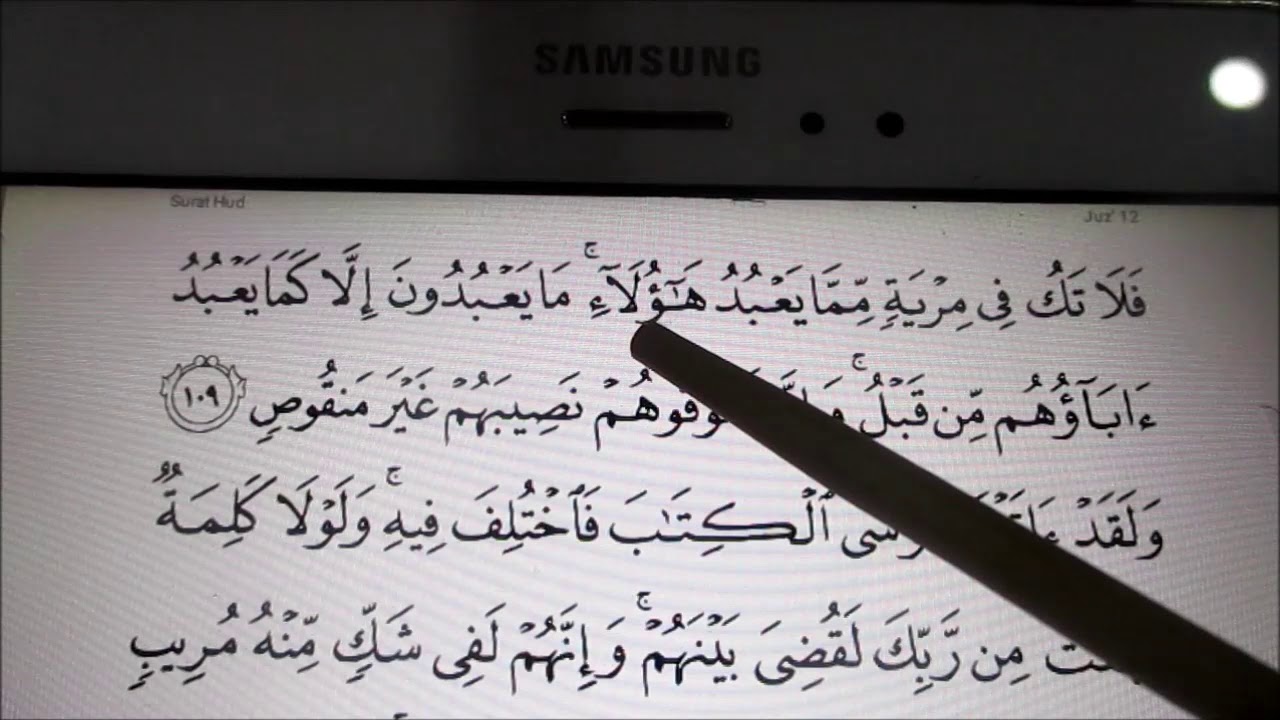 SAMSUNG
Surat Hud
Juz' 12
فَلَا تَكُ فِى مِرْيَةٍ مِّمَّا يَعْبُدُ هَـٰٓؤُلَآءِ ۚ مَا يَعْبُدُونَ إِلَّا كَمَا يَعْبُدُ
ءَابَآؤُهُم مِّن قَبْلُ ۚ نَصِيبَهُمْ غَيْرَ مَنقُوصٍ ١٠٩
وَلَقَدْ ٱلْكِتَـٰبَ فَٱخْتُلِفَ فِيهِ ۚ وَلَوْلَا كَلِمَةٌ
مِن رَّبِّكَ لَقُضِىَ بَيْنَهُمْ ۚ وَإِنَّهُمْ لَفِى شَكٍّ مِّنْهُ مُرِيبٍ